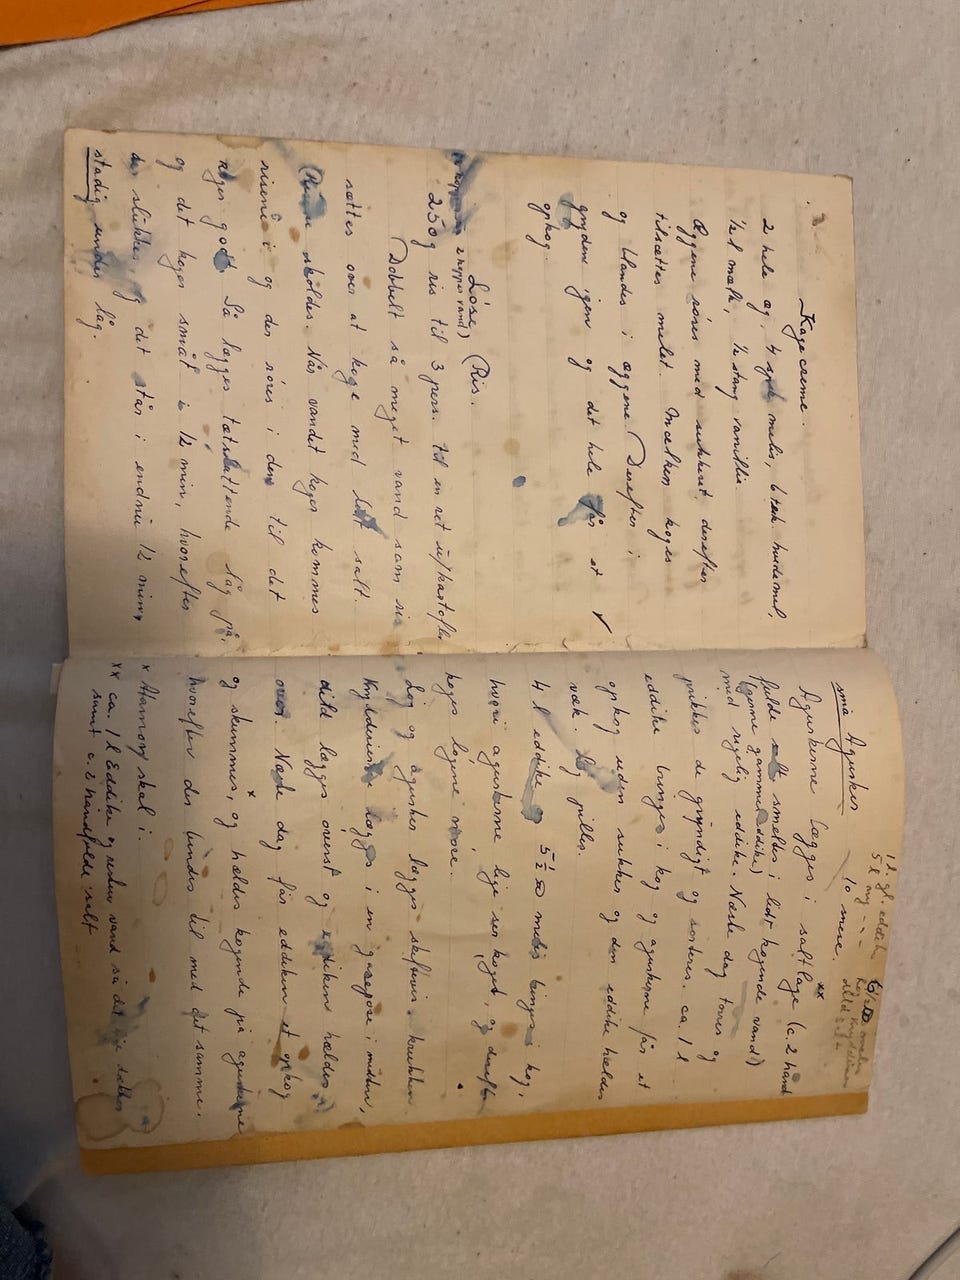 Kagecreme.
2 hele æg, 4 melis, 6 hvedemel,
1/2 l mælk, 1/2 stang vanillie.
Æggene røres med sukkeret, derefter
tilsættes melet. Mælken koges
og blandes i æggene. Derefter i
gryden igen og det hele får et
opkog.
Løse (Ris.
2 kopper vand)
250 g ris til 3 pers. til en ret u/kartofler
Dobbelt så meget vand som ris
sættes over at koge med lidt salt.
(Risene skoldes. Når vandet koger kommes
risene i og der røres i dem til det
koger godt. Så lægges tætsluttende låg på,
og det koger småt i 12 min, hvorefter
der slukkes, og det står i endnu 12 min,
stadig under låg.
1 l. gl. eddike
5 l ny
små Agurker 10 mere.
Agurkerne lægges i saltlage (c. 2 hånd xx
fulde salt smeltes i lidt kogende vand)
(gerne gammel eddike)
med rigelig eddike. Næste dag tørres og
prikkes de grundigt og sorteres. ca. 1 l
eddike bringes i kog og agurkerne får et
opkog uden sukker og den eddike hældes
væk. Løg pilles.
4 l eddike og 5 1/2 melis bringes i kog,
hvori agurkerne lige ses koget, og derefter
koges løgene møre.
Løg og agurker lægges skiftevis i krukken.
Krydderierne lægges i en gazepose i midten,
dild lægges øverst og eddiken hældes
over. Næste dag får eddiken et opkog
og skummes, x og hældes kogende på agurkerne
hvorefter der bindes til med det samme.
x Atamon skal i.
xx ca. 1 l Eddike og resten vand så det lige dækker
samt c. 2 håndfulde salt